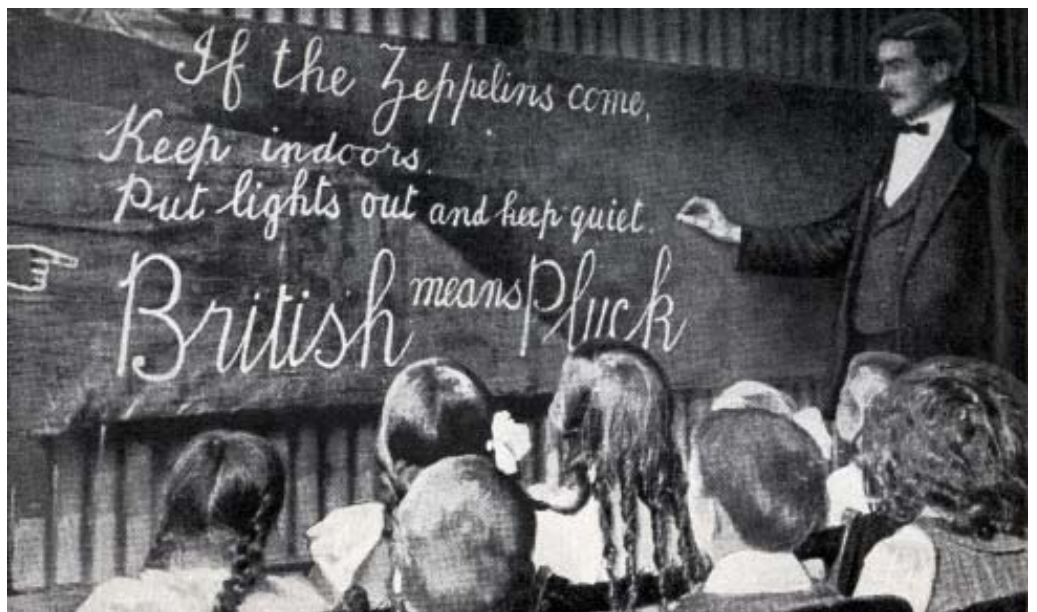 If the Zeppelins come,
Keep indoors.
Put lights out and keep quiet.
British means Pluck